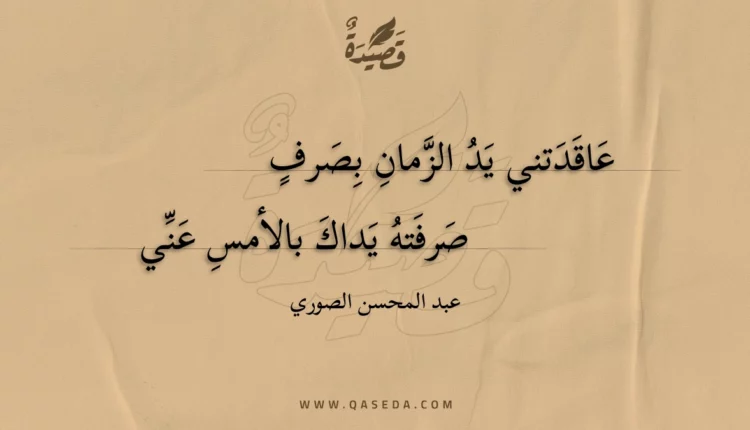 قَصِيدَةٌ
عَاقَدَتني يَدُ الزَّمانِ بِصَرفٍ
صَرِفَتهُ يَداكَ بالأمسِ عَنِّي
عبد المحسن الصوري
WWW.QASEDA.COM